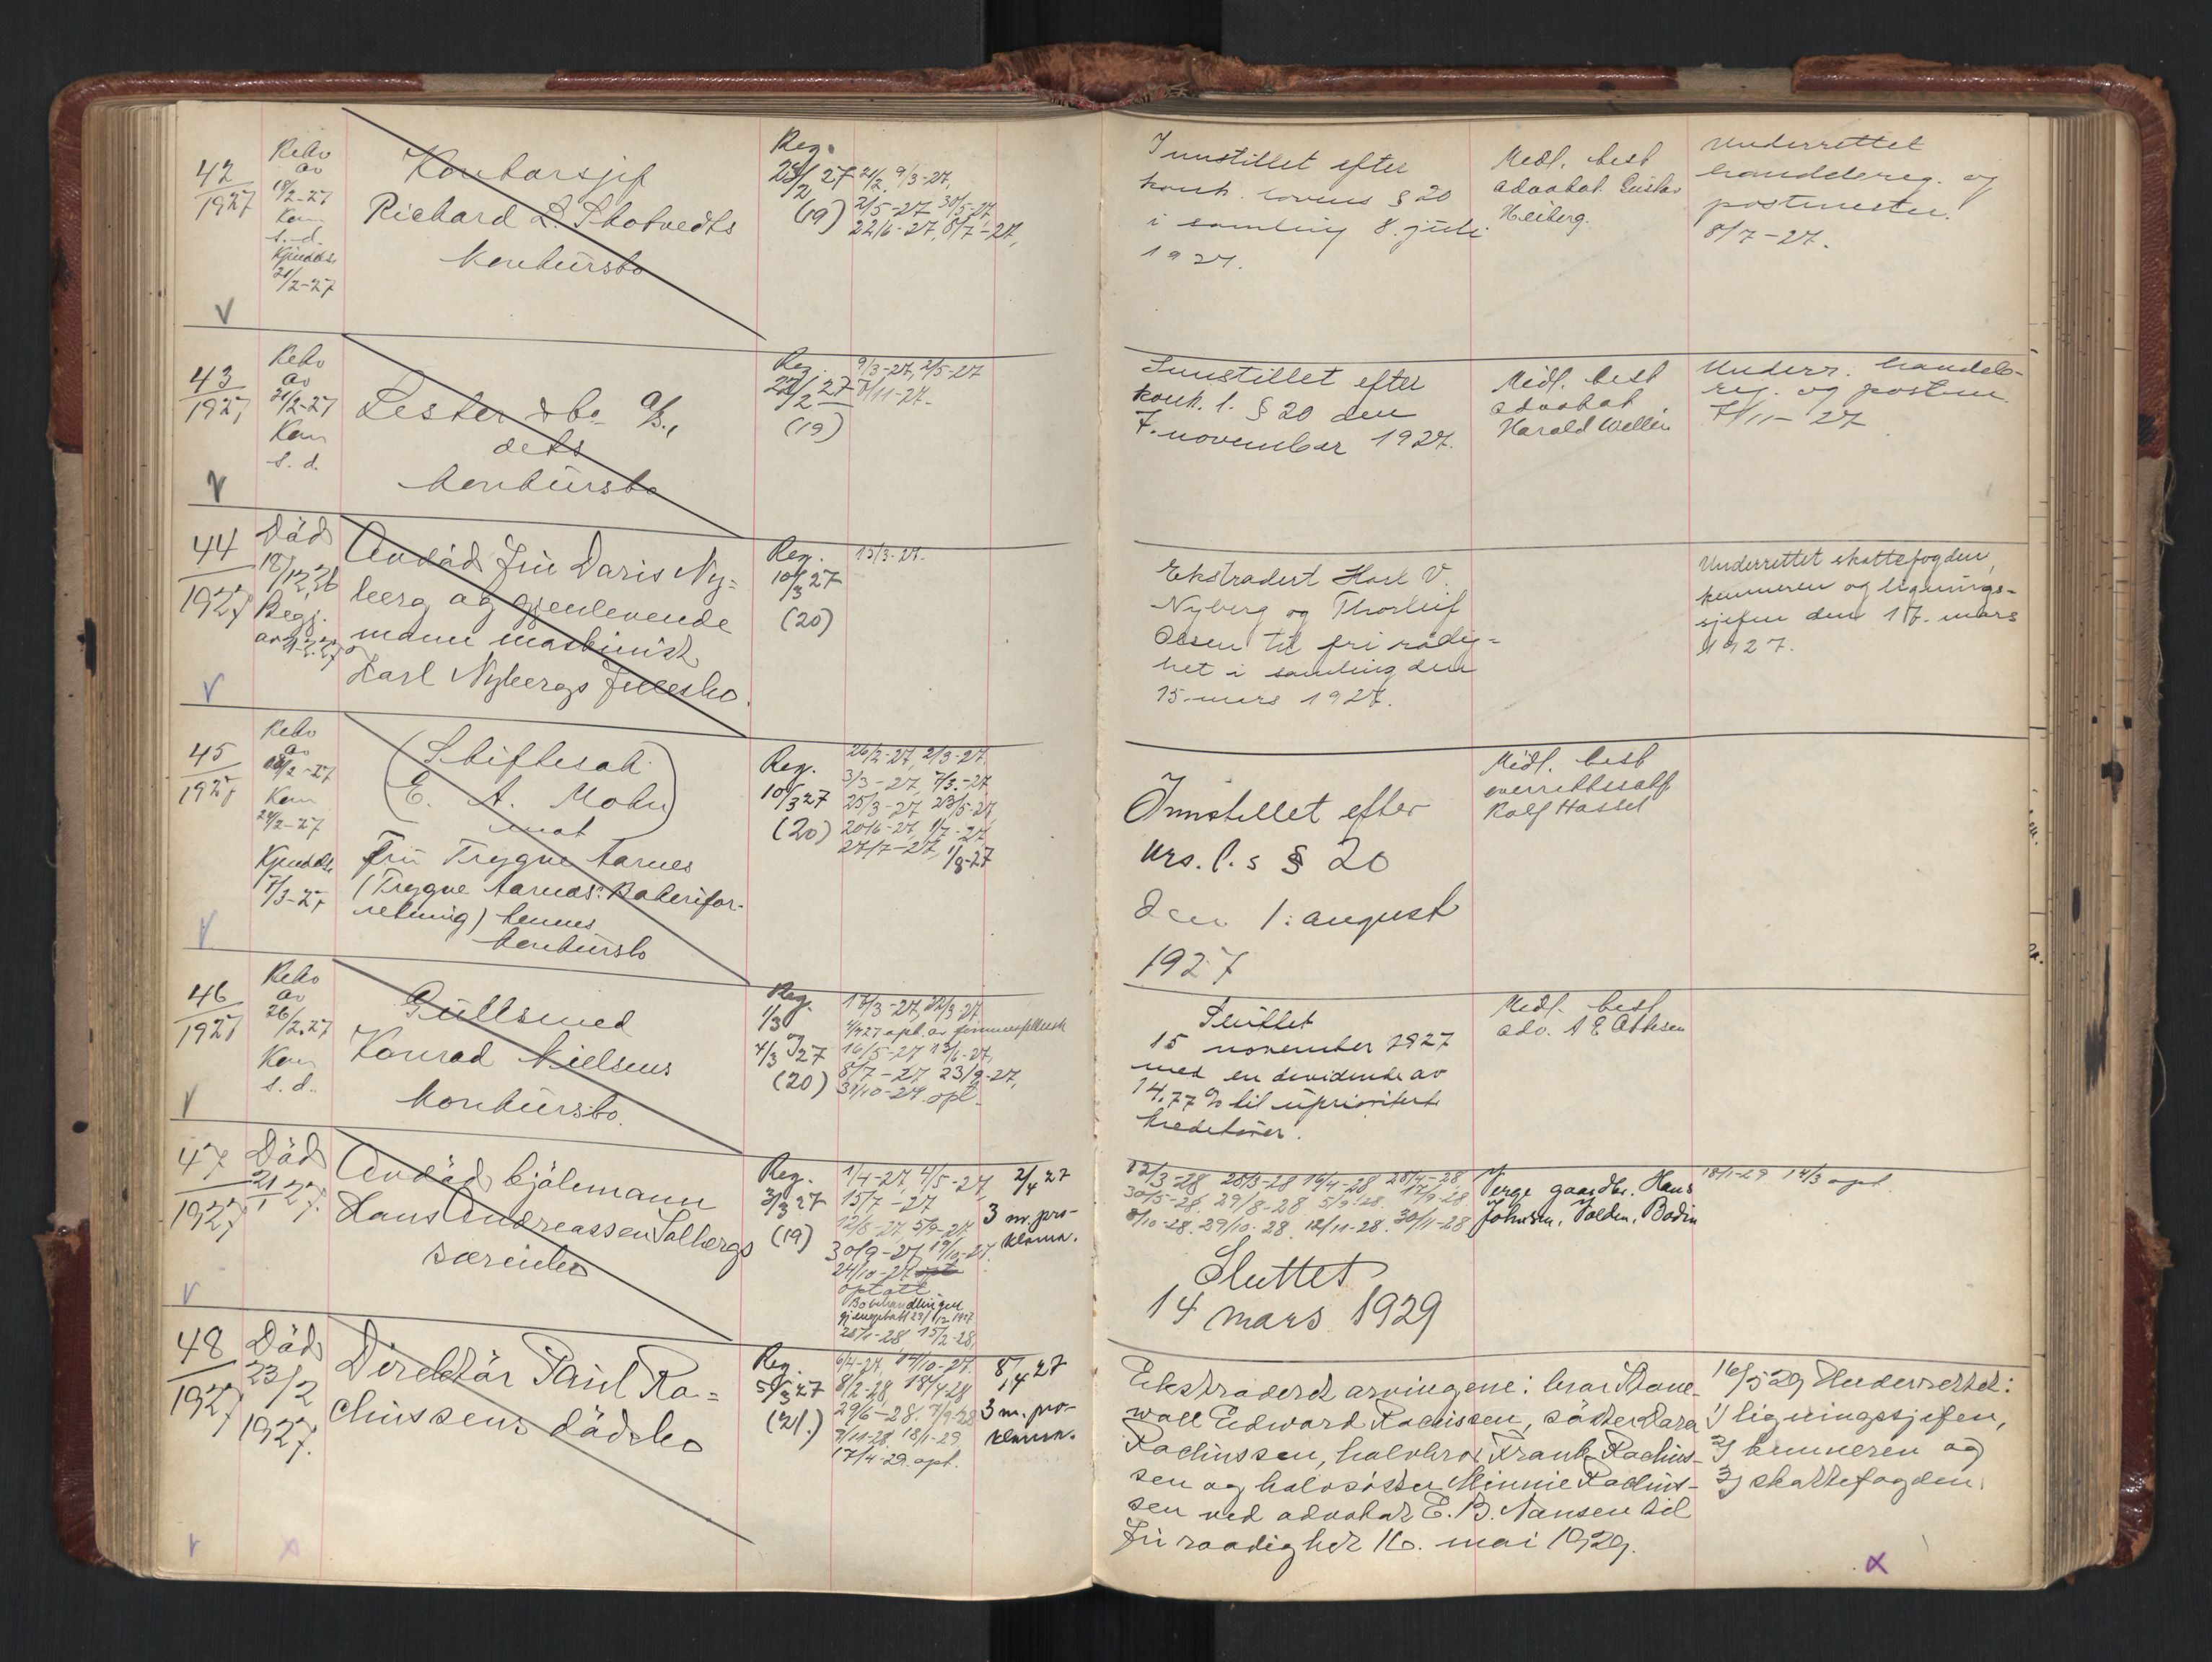 42
1927
Rekv
av
18/2-27
Kom
s.d.
Kjendelse
21/2-27
Kontorsjef
Richard L. Skotvedts
konkursbo
Reg.
23/2 27
(19)
24/2 9/3-27,
2/5-27 30/5-27,
22/6-27, 8/7-27,
Innstillet efter
konk. lovens § 20
i samling 8. juli
1927.
Midl. best
advokat Gustav
Heiberg.
Underrettet
handelsreg. og
postmester.
8/7-27.
43
1927
Rekv
av
21/2-27
Kom
s. d.
Lester & Co A/S,
dets
konkursbo
Reg.
22/2 27
(19)
9/3-27, 2/5-27
7/11-27.
Innstillet efter
konk. l. § 20 den
7. november 1927.
Midl. best
advokat
Harald Wellén
Underr. handels-
reg. og postm.
7/11-27
44
1927
Död
18/12.26
Begj.
av
Avdöd Fru Doris Ny-
berg og gjenlevende
mann maskinist
Karl Nybergs fellesbo.
Reg.
10/3 27
(20)
15/3-27.
Ekstradert Karl V.
Nyberg og Thorleif
Olsen til fri rådig-
het i samling den
15. mars 1927.
Underrettet skattefogden,
kemneren og lignings-
sjefen den 17. mars
1927.
45
1927
Rekv
av
Kom
24/2-27
Kjendelse
7/3-27
(Skiftesak
E. A. Mohn)
mot
Fru Trygve Aarnes
(Trygve Aarnes' Bakerifor-
retning) hennes
konkursbo
Reg.
10/3 27
(20)
26/2-27, 2/3-27,
3/3-27, 7/3-27
25/3-27 23/5-27
20/6-27, 1/7-27,
27/7-27, 1/8-27
Innstillet efter
krs. l.s § 20
den 1. august
1927
Midl. best
overrettssakf.
Rolf Hassel
46
1927
Rekv
av
26/2.27
Kom
s. d.
Gullsmed
Konrad Nielsens
konkursbo.
Reg.
1/3 og
4/3 27
(20)
17/3-27, 22/3-27
16/5-27 13/6-27,
8/7-27 23/9-27,
31/10-27 opl.
Sluttet
15 november 1927
med en dividende av
14.77 % til uprioriterte
kreditorer.
Midl. best
adv. A E Ottesen
47
1927
Död
21/1 27.
Avdöd kjölemann
Hans Andreassen Solbergs
særeiebo
Reg.
3/3 27
(19)
1/4-27, 4/5-27,
15/7-27
12/8-27, 5/9-27,
30/9-27, 19/10-27.
24/10-27 opt
optatt
Bobehandlingen
gjenoptatt 23/12 1927
25/1-28 15/2-28,
2/4 27
3 m. pro-
klama.
12/3-28 28/3-28 16/4-28 28/4-28,
30/5-28, 29/8-28 5/9-28 17/9-28
8/10-28. 29/10-28, 12/11-28. 30/11-28
Sluttet
14 mars 1929
Verge gaardbr. Hans
Johnsen, Valden, Bodin
18/1-29 14/3 opt
48
1927
Död
23/2
1927.
Direktör Paul Ra-
chussens dödsbo
Reg.
5/3 27
(21.)
6/4-27, 14/10-27.
8/2-28, 18/4-28
29/6-28. 7/9-28
7/11-28. 18/1-29
17/4-29. opt.
8/4 27
3 m. pro-
klama.
Ekstraderet arvingene: bror Thone-
wall Edward Rachussen, söster Clara
Rachussen, halvbror Frank Rachus-
sen og halvsöster Minnie Rachus-
sen ved advokat E. B. Nansen til
fri raadighet 16. mai 1929.
16/5 29 Underrettet:
1) ligningssjefen,
2) kemneren og
3) skattefogden.